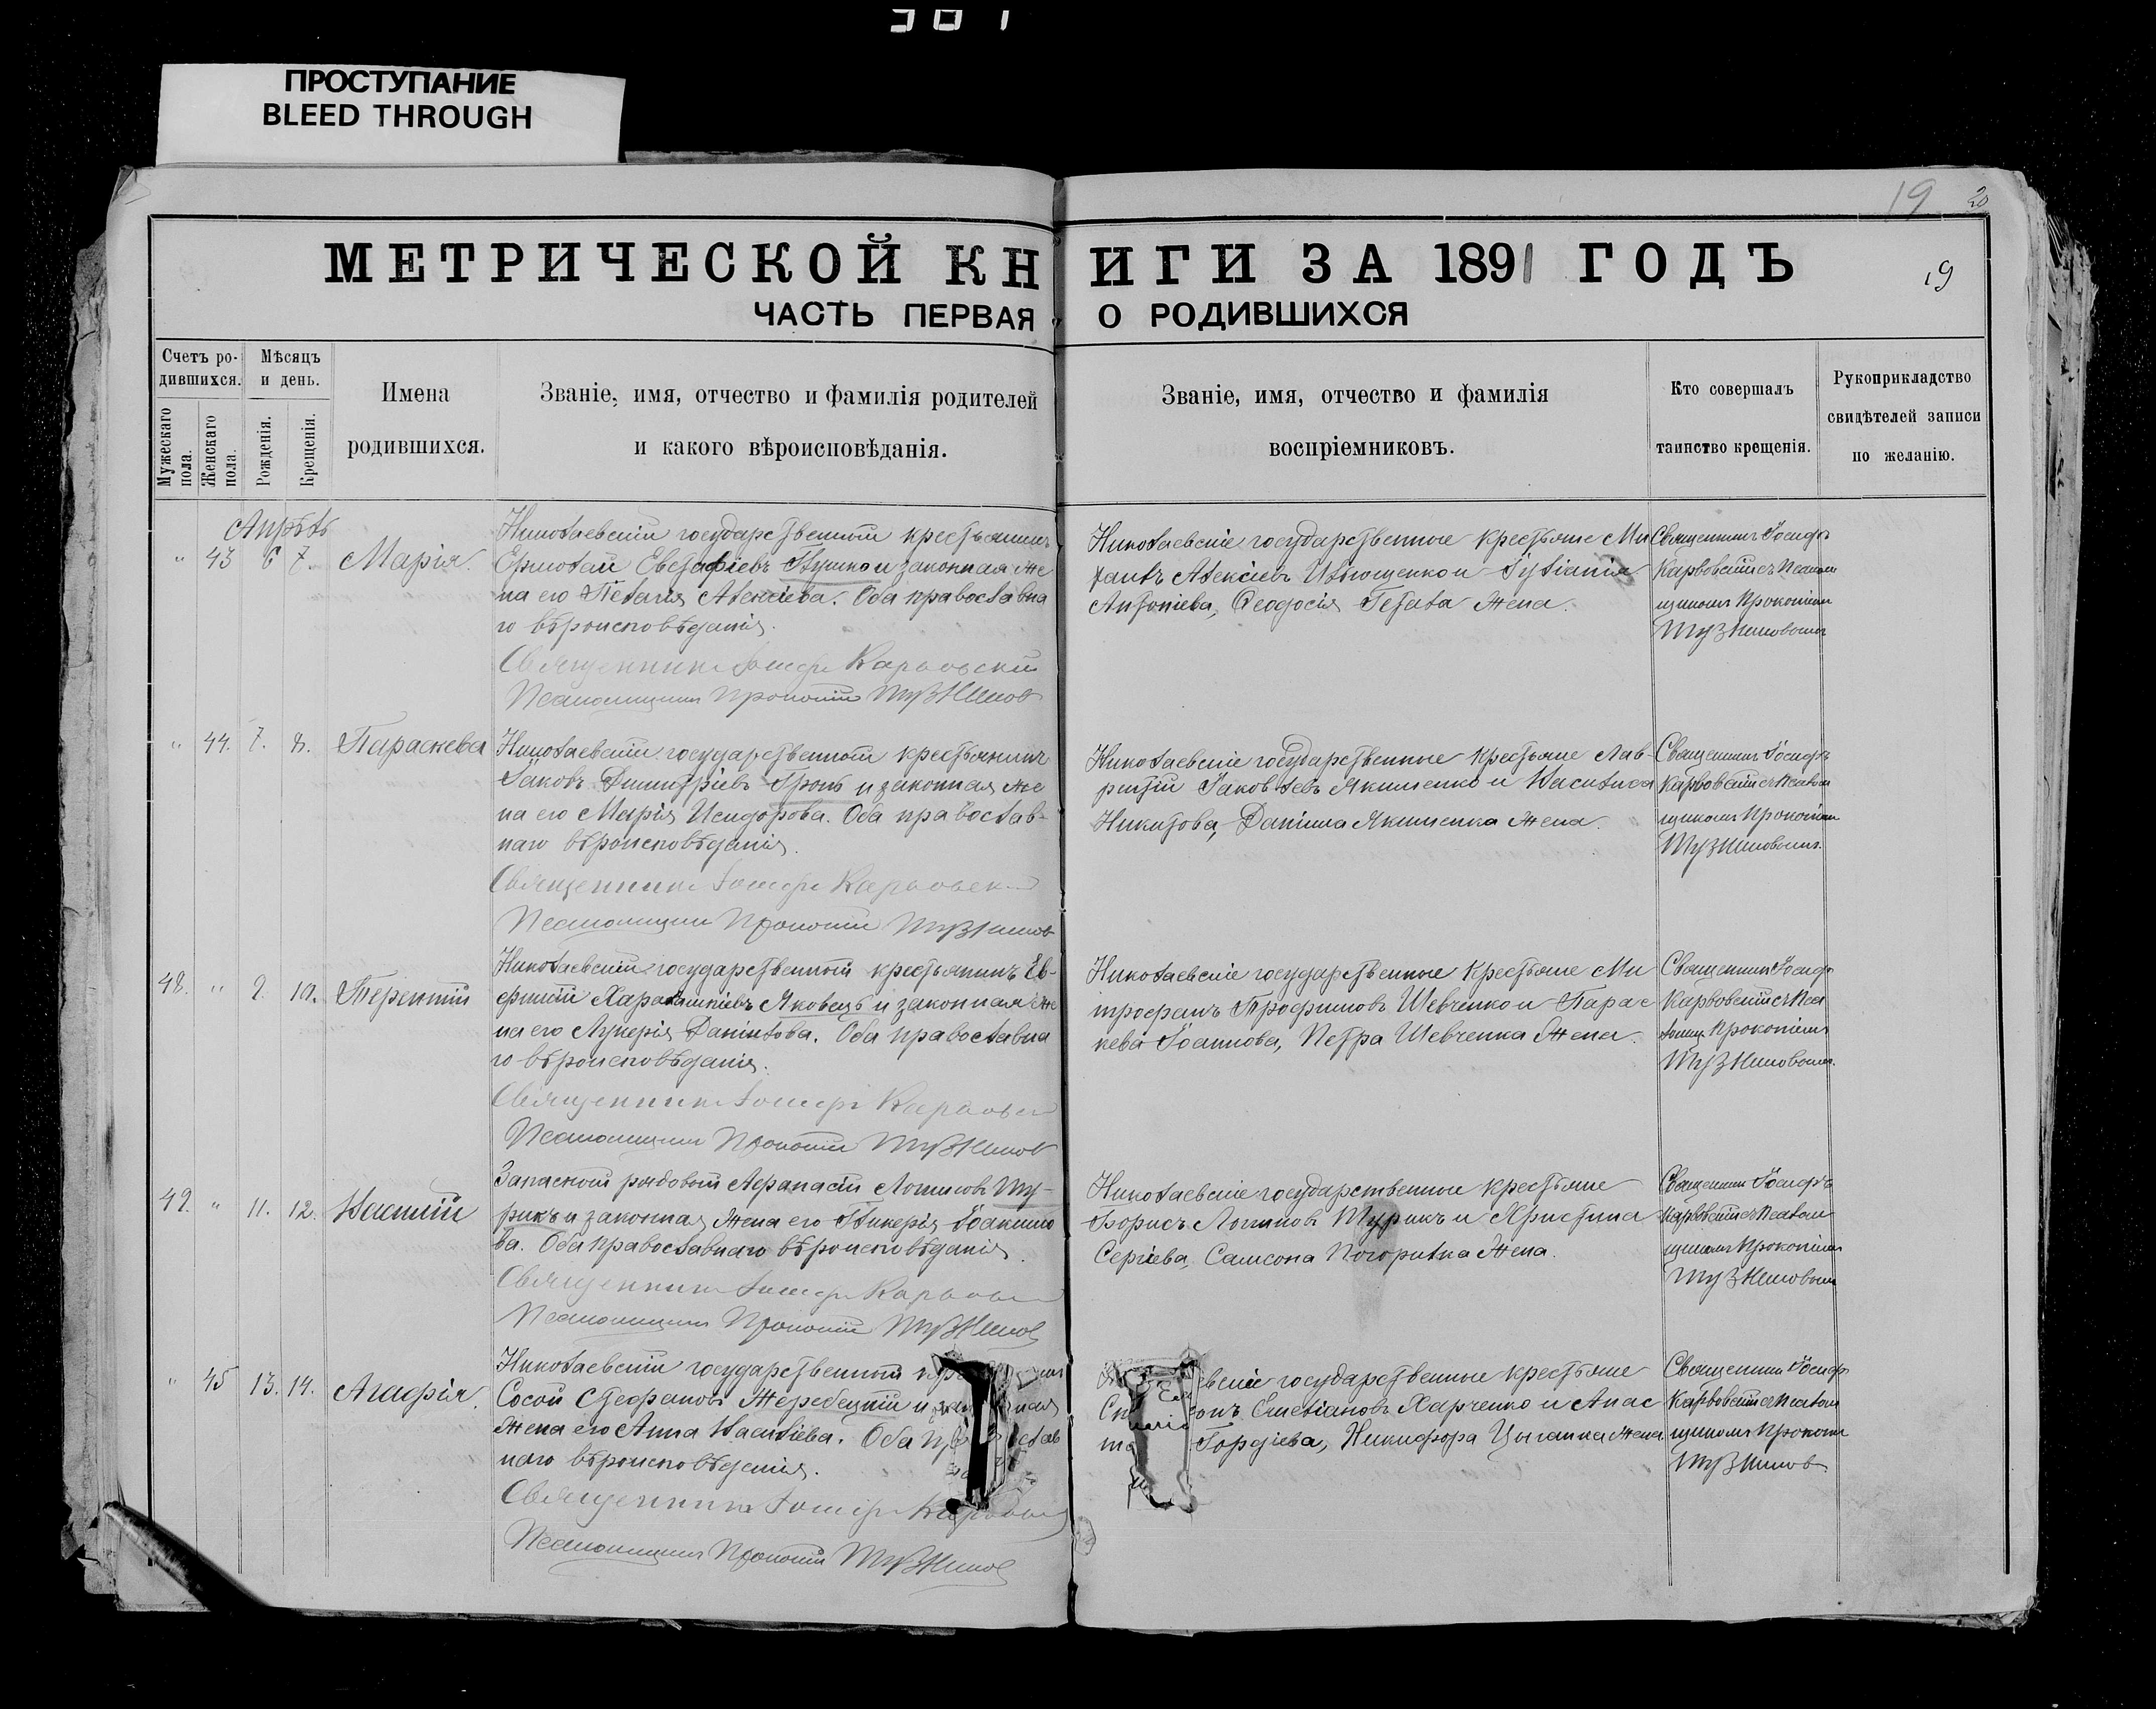 ПРОСТУПАНИЕ
BLEED THROUGH
19 20
МЕТРИЧЕСКОЙ КНИГИ ЗА 1891 ГОДЪ
19
ЧАСТЬ ПЕРВАЯ О РОДИВШИХСЯ
Счетъ ро-
дившихся.
Мужескаго пола.
Женскаго пола.
Мѣсяцъ
и день.
Рожденія.
Крещенія.
Имена
родившихся.
Званіе, имя, отчество и фамилія родителей
и какого вѣроисповѣданія.
Званіе, имя, отчество и фамилія
воспріемниковъ.
Кто совершалъ
таинство крещенія.
Рукоприкладство
свидѣтелей записи
по желанію.
Апрѣль
" 43 6 7. Марія.
Николаевскій государственный крестьянинъ
Ермолай Евстафіевъ и законная же
на его Пелагія Алексіева. Оба православна
го вѣроисповѣданія.
Священникъ Іосифъ Карвовскій
Псаломщикъ Прокопій
Николаевскіе государственные крестьяне Ми
хаилъ Алексіевъ Ивлющенко и Іуліанія
Антоніева, Феодосія жена.
Священникъ Іосифъ
Карвовскій съ Псалом
щикомъ Прокопіемъ
" 44. 7. 8. Параскева
Николаевскій государственный крестьянинъ
Іаковъ Димитріевъ Гронь и законная же
на его Марія Исидорова. Оба православ-
наго вѣроисповѣданія.
Священникъ Іосифъ
Псаломщикъ Прокопій
Николаевскіе государственные крестьяне Лав-
рентій Іаковлевъ Якименко и Василиса
Никитова, Даніила Якименка жена.
Священникъ Іосифъ
Карвовскій съ Псалом
щикомъ Прокопіем
48. " 9. 10. Терентій
Николаевскій государственный крестьянинъ Ев-
фимій Харалампіевъ Яковецъ и законная же
на его Лукерія Даніилова. Оба православна
го вѣроисповѣданія.
Священникъ Іосифъ
Псаломщикъ Прокопій
Николаевскіе государственные крестьяне Ми
трофанъ Трофимовъ Шевченко и Парас
кева Іоаннова, Петра Шевченка жена.
Священникъ Іосифъ
Карвовскій съ Пса
ломщ Прокопіемъ
49. " 11. 12. Василій
Запасный рядовой Афанасій Логиновъ Ту-
рикъ и законная жена его Гликерія Іоакимо
ва. Оба православнаго вѣроисповѣданія.
Священникъ Іосифъ
Псаломщикъ Прокопій
Николаевскіе государственные крестьяне
Борисъ Логиновъ Турикъ и Христина
Сергіева, Самсона Погорилка жена.
Священникъ Іосифъ
Карвовскій съ Псалом
щикомъ Прокопіем
" 45 13. 14. Агафія.
Николаевскій государственный
Сосой Стефановъ Жеребецкій и
жена его Анна Василіева. Оба
наго вѣроисповѣданія.
Священникъ Іосифъ
Псаломщикъ Прокопій
государственные крестьяне
Емеліановъ Харченко и Анас
Гордіева, Никифора Цыганка жена
Священникъ Іосиф
Карвовскій съ Псалом
щикомъ Прокопіем